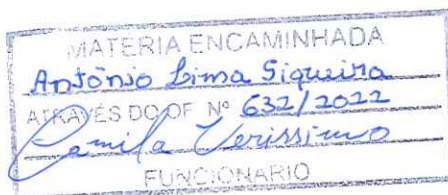 MATÉRIA ENCAMINHADA
Antônio Lima Siqueira
ATRAVÉS DO OF Nº 632/2022
Camila Verissimo
FUNCIONÁRIO